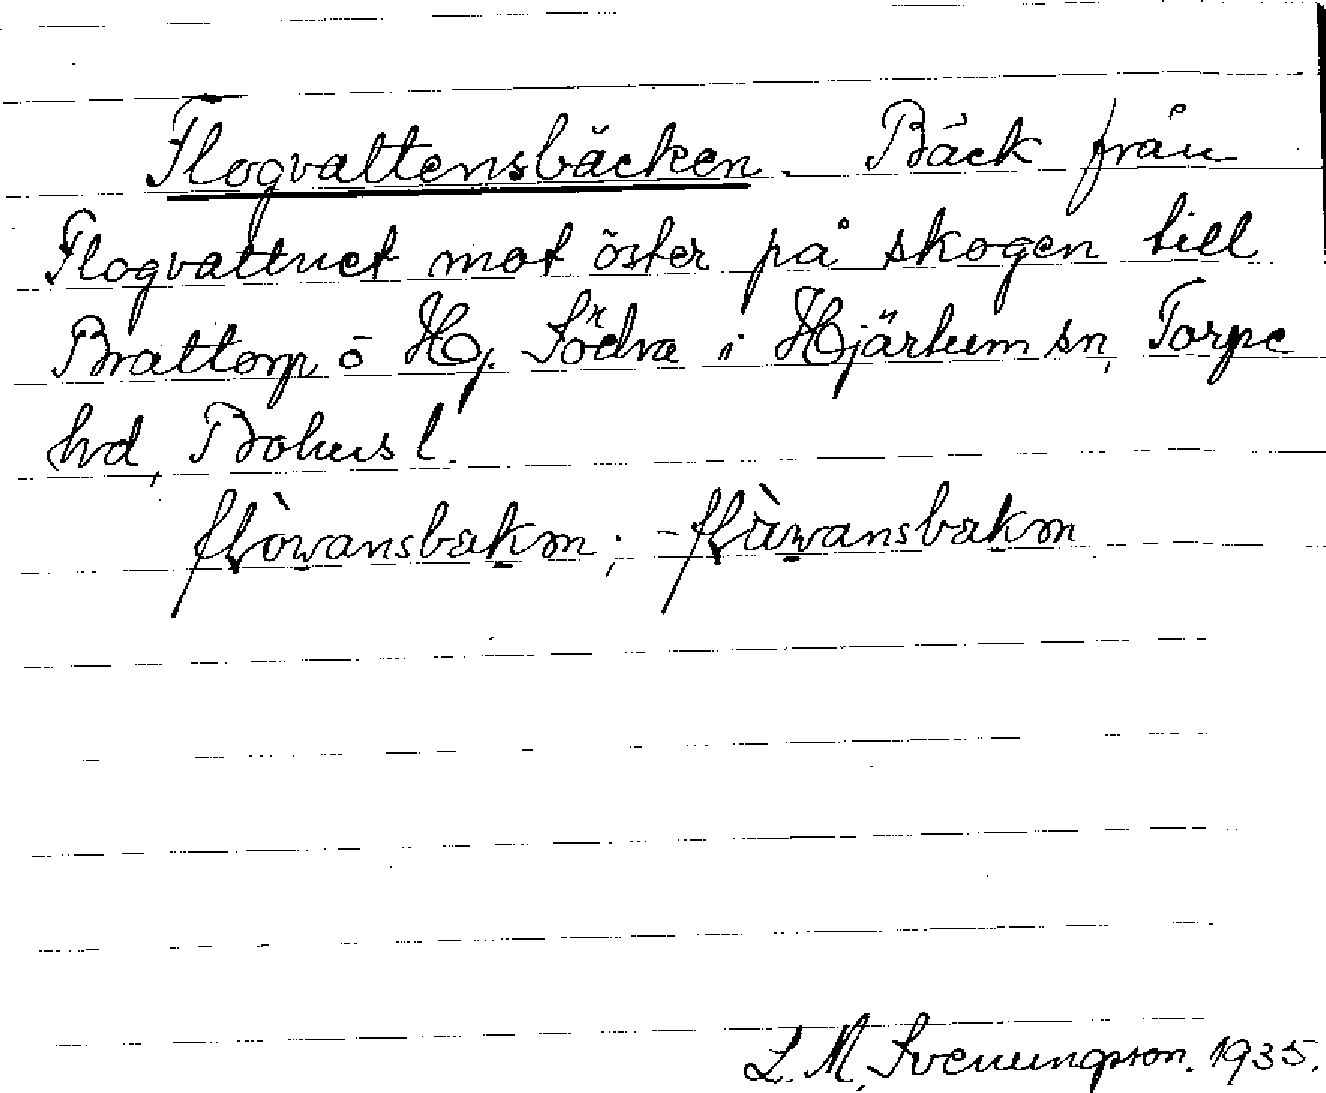 Flogvattensbäcken. Bäck från
Flogvattnet mot öster på skogen till
Brattorp ö Hj. Södra i Hjärtum sn, Torpe
hd, Bohusl.
flòwansbäkən; -flàwansbäkən
L. M. Svenungsson. 1935.